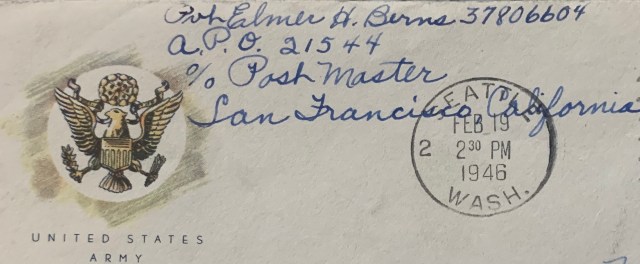 Pvt Elmer H. Berns 37806604
A.P.O. 21544
c/o Post Master
San Francisco, California
SEATTLE
FEB 19
2 2 30 PM
1946
WASH.
UNITED STATES
ARMY